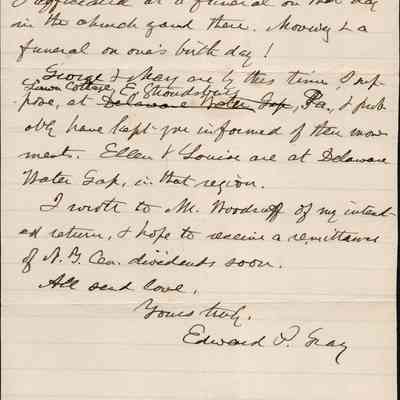 I officiated at a funeral on that day
in the church yard there. Moving to a
funeral on one's birth day!
George & May are by this time, I sup-
Lawn Cottage, E. Stroudsburg
pose, at Delaware Water Gap, Pa., & prob
ably have kept you informed of their move
ments. Ellen & Louise are at Delaware
Water Gap, in that region.
I wrote to Mr. Woodruff of my intend-
ed return, & hope to receive a remittance
of N.Y. Cen. dividends soon.
All send love.
Yours truly,
Edward P. Gray